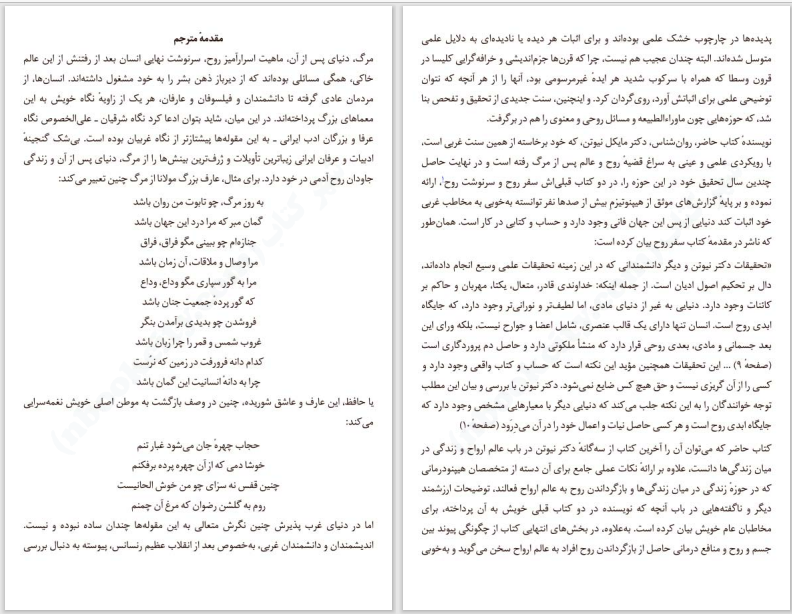 مقدمهٔ مترجم
مرگ، دنیای پس از آن، ماهیت اسرارآمیز روح، سرنوشت نهایی انسان بعد از رفتنش از این عالم
خاکی، همگی مسائلی بوده‌اند که از دیرباز ذهن بشر را به خود مشغول داشته‌اند. انسان‌ها، از
مردمان عادی گرفته تا دانشمندان و فیلسوفان و عارفان، هر یک از زاویهٔ نگاه خویش به این
معماهای بزرگ پرداخته‌اند. در این میان، شاید بتوان ادعا کرد نگاه شرقیان ـ علی‌الخصوص نگاه
عرفا و بزرگان ادب ایرانی ـ به این مقوله‌ها پیشتازتر از نگاه غربیان بوده است. بی‌شک گنجینهٔ
ادبیات و عرفان ایرانی زیباترین تأویلات و ژرف‌ترین بینش‌ها را از مرگ، دنیای پس از آن و زندگی
جاودان روح آدمی در خود دارد. برای مثال، عارف بزرگ مولانا از مرگ چنین تعبیر می‌کند:
به روز مرگ، چو تابوت من روان باشد
گمان مبر که مرا درد این جهان باشد
جنازه‌ام چو ببینی مگو فراق، فراق
مرا وصال و ملاقات، آن زمان باشد
مرا به گور سپاری مگو وداع، وداع
که گور پردهٔ جمعیت جنان باشد
فروشدن چو بدیدی برآمدن بنگر
غروب شمس و قمر را چرا زیان باشد
کدام دانه فرورفت در زمین که نرُست
چرا به دانهٔ انسانیت این گمان باشد
یا حافظ، این عارف و عاشق شوریده، چنین در وصف بازگشت به موطن اصلی خویش نغمه‌سرایی
می‌کند:
حجاب چهرهٔ جان می‌شود غبار تنم
خوشا دمی که از آن چهره پرده برفکنم
چنین قفس نه سزای چو من خوش الحانیست
روم به گلشن رضوان که مرغ آن چمنم
اما در دنیای غرب پذیرش چنین نگرش متعالی به این مقوله‌ها چندان ساده نبوده و نیست.
اندیشمندان و دانشمندان غربی، به‌خصوص بعد از انقلاب عظیم رنسانس، پیوسته به دنبال بررسی
پدیده‌ها در چارچوب خشک علمی بوده‌اند و برای اثبات هر دیده یا نادیده‌ای به دلایل علمی
متوسل شده‌اند. البته چندان عجیب هم نیست، چرا که قرن‌ها جزم‌اندیشی و خرافه‌گرایی کلیسا در
قرون وسطا که همراه با سرکوب شدید هر ایدهٔ غیرمرسومی بود، آنها را از هر آنچه که نتوان
توضیحی علمی برای اثباتش آورد، روی‌گردان کرد. و اینچنین، سنت جدیدی از تحقیق و تفحص بنا
شد، که حوزه‌هایی چون ماوراءالطبیعه و مسائل روحی و معنوی را هم در برگرفت.
نویسندهٔ کتاب حاضر، روان‌شناس، دکتر مایکل نیوتن، که خود برخاسته از همین سنت غربی است،
با رویکردی علمی و عینی به سراغ قضیهٔ روح و عالم پس از مرگ رفته است و در نهایت حاصل
چندین سال تحقیق خود در این حوزه را، در دو کتاب قبلی‌اش سفر روح و سرنوشت روح، ارائه
نموده و بر پایهٔ گزارش‌های موثق از هیپنوتیزم بیش از صدها نفر توانسته به‌خوبی به مخاطب غربی
خود اثبات کند دنیایی از پس این جهان فانی وجود دارد و حساب و کتابی در کار است. همان‌طور
که ناشر در مقدمهٔ کتاب سفر روح بیان کرده است:
«تحقیقات دکتر نیوتن و دیگر دانشمندانی که در این زمینه تحقیقات علمی وسیع انجام داده‌اند،
دال بر تحکیم اصول ادیان است. از جمله اینکه: خداوندی قادر، متعال، یکتا، مهربان و حاکم بر
کائنات وجود دارد. دنیایی به غیر از دنیای مادی، اما لطیف‌تر و نورانی‌تر وجود دارد، که جایگاه
ابدی روح است. انسان تنها دارای یک قالب عنصری، شامل اعضا و جوارح نیست، بلکه ورای این
بعد جسمانی و مادی، بعدی روحی قرار دارد که منشأ ملکوتی دارد و حاصل دم پروردگاری است
(صفحهٔ ۹) ... این تحقیقات همچنین مؤید این نکته است که حساب و کتاب واقعی وجود دارد و
کسی را از آن گریزی نیست و حق هیچ کس ضایع نمی‌شود. دکتر نیوتن با بررسی و بیان این مطلب
توجه خوانندگان را به این نکته جلب می‌کند که دنیایی دیگر با معیارهایی مشخص وجود دارد که
جایگاه ابدی روح است و هر کسی حاصل نیات و اعمال خود را در آن می‌درَوَد (صفحهٔ ۱۰)
کتاب حاضر که می‌توان آن را آخرین کتاب از سه‌گانهٔ دکتر نیوتن در باب عالم ارواح و زندگی در
میان زندگی‌ها دانست، علاوه بر ارائهٔ نکات عملی جامع برای آن دسته از متخصصان هیپنودرمانی
که در حوزهٔ زندگی در میان زندگی‌ها و بازگرداندن روح به عالم ارواح فعالند، توضیحات ارزشمند
دیگر و ناگفته‌هایی در باب آنچه که نویسنده در دو کتاب قبلی خویش به آن پرداخته، برای
مخاطبان عام خویش بیان کرده است. به‌علاوه، در بخش‌های انتهایی کتاب از چگونگی پیوند بین
جسم و روح و منافع درمانی حاصل از بازگرداندن روح افراد به عالم ارواح سخن می‌گوید و به‌خوبی